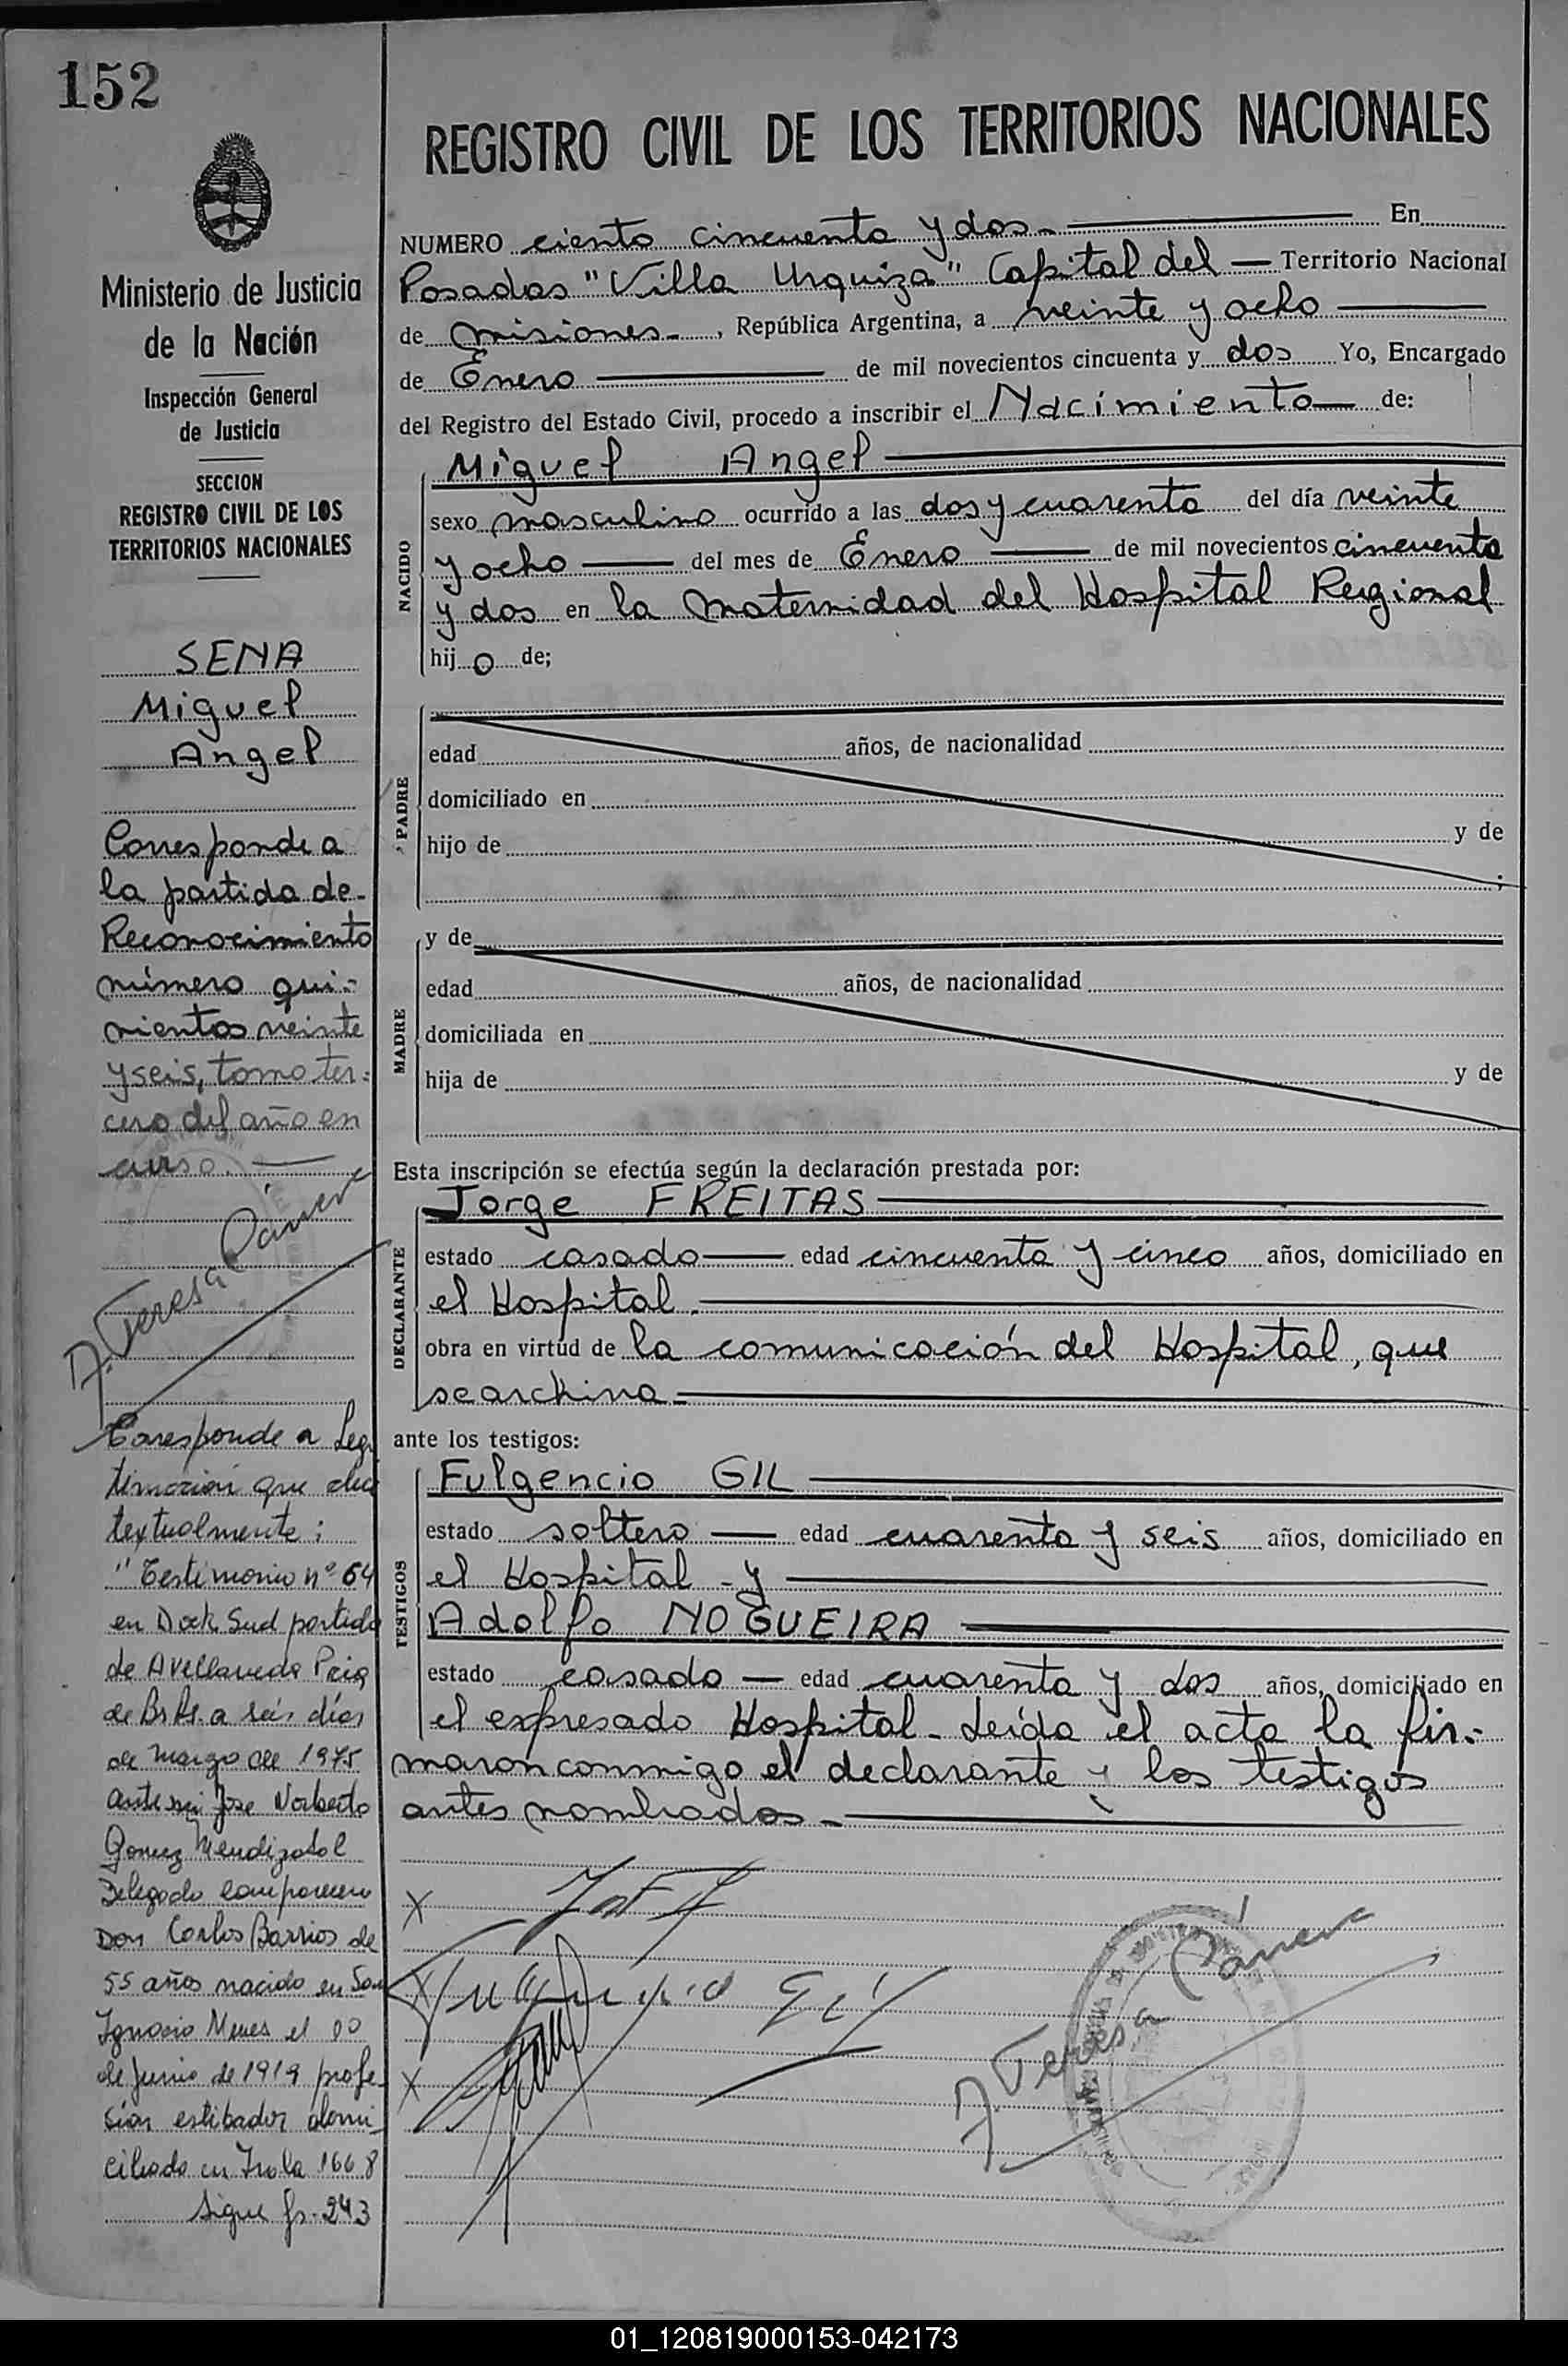 152
Ministerio de Justicia
de la Nación
Inspección General
de Justicia
SECCION
REGISTRO CIVIL DE LOS
TERRITORIOS NACIONALES
SENA
Miguel
Angel
Corresponde a
la partida de-
Reconocimiento
número qui-
nientos veinte
y seis, tomo ter=
cero del año en
curso.
A. Teresa
Corresponde a Legi
timación que dice
textualmente:
"Testimonio nº 64
en Dock Sud partido
de Avellaneda Pcia
de Bs As. a seis días
de marzo de 1975
ante mi Jose Norberto
Gomez Mendizabal
Delegado comparecen
Don Carlos Barrios de
55 años nacido en San
Ignacio Mnes el
de Junio de 1919 profe-
sión estibador domi-
ciliado en Irala 1668
Sigue fs. 243
REGISTRO CIVIL DE LOS TERRITORIOS NACIONALES
NUMERO ciento cincuenta y dos.- En
Posadas "Villa Urquiza" Capital del — Territorio Nacional
de Misiones.-, República Argentina, a veinte y ocho
de Enero de mil novecientos cincuenta y dos Yo, Encargado
del Registro del Estado Civil, procedo a inscribir el Nacimiento de:
NACIDO
Miguel Angel
sexo masculino ocurrido a las dos y cuarenta del día veinte
y ocho del mes de Enero de mil novecientos cincuenta
y dos en la Maternidad del Hospital Regional
hijo de;
PADRE
edad años, de nacionalidad
domiciliado en
hijo de y de
;
MADRE
y de
edad años, de nacionalidad
domiciliada en
hija de y de
Esta inscripción se efectúa según la declaración prestada por:
DECLARANTE
Jorge FREITAS
estado casado edad cincuenta y cinco años, domiciliado en
el Hospital.
obra en virtud de la comunicación del Hospital, que
se archiva.-
ante los testigos:
TESTIGOS
Fulgencio GIL
estado soltero edad cuarenta y seis años, domiciliado en
el Hospital - y
Adolfo NOGUEIRA
estado casado — edad cuarenta y dos años, domiciliado en
el expresado Hospital - Leída el acta la fir-
maron conmigo el declarante y los testigos
antes nombrados.-
X
X Fulgencio Gil
X
A. Teresa
01_120819000153-042173